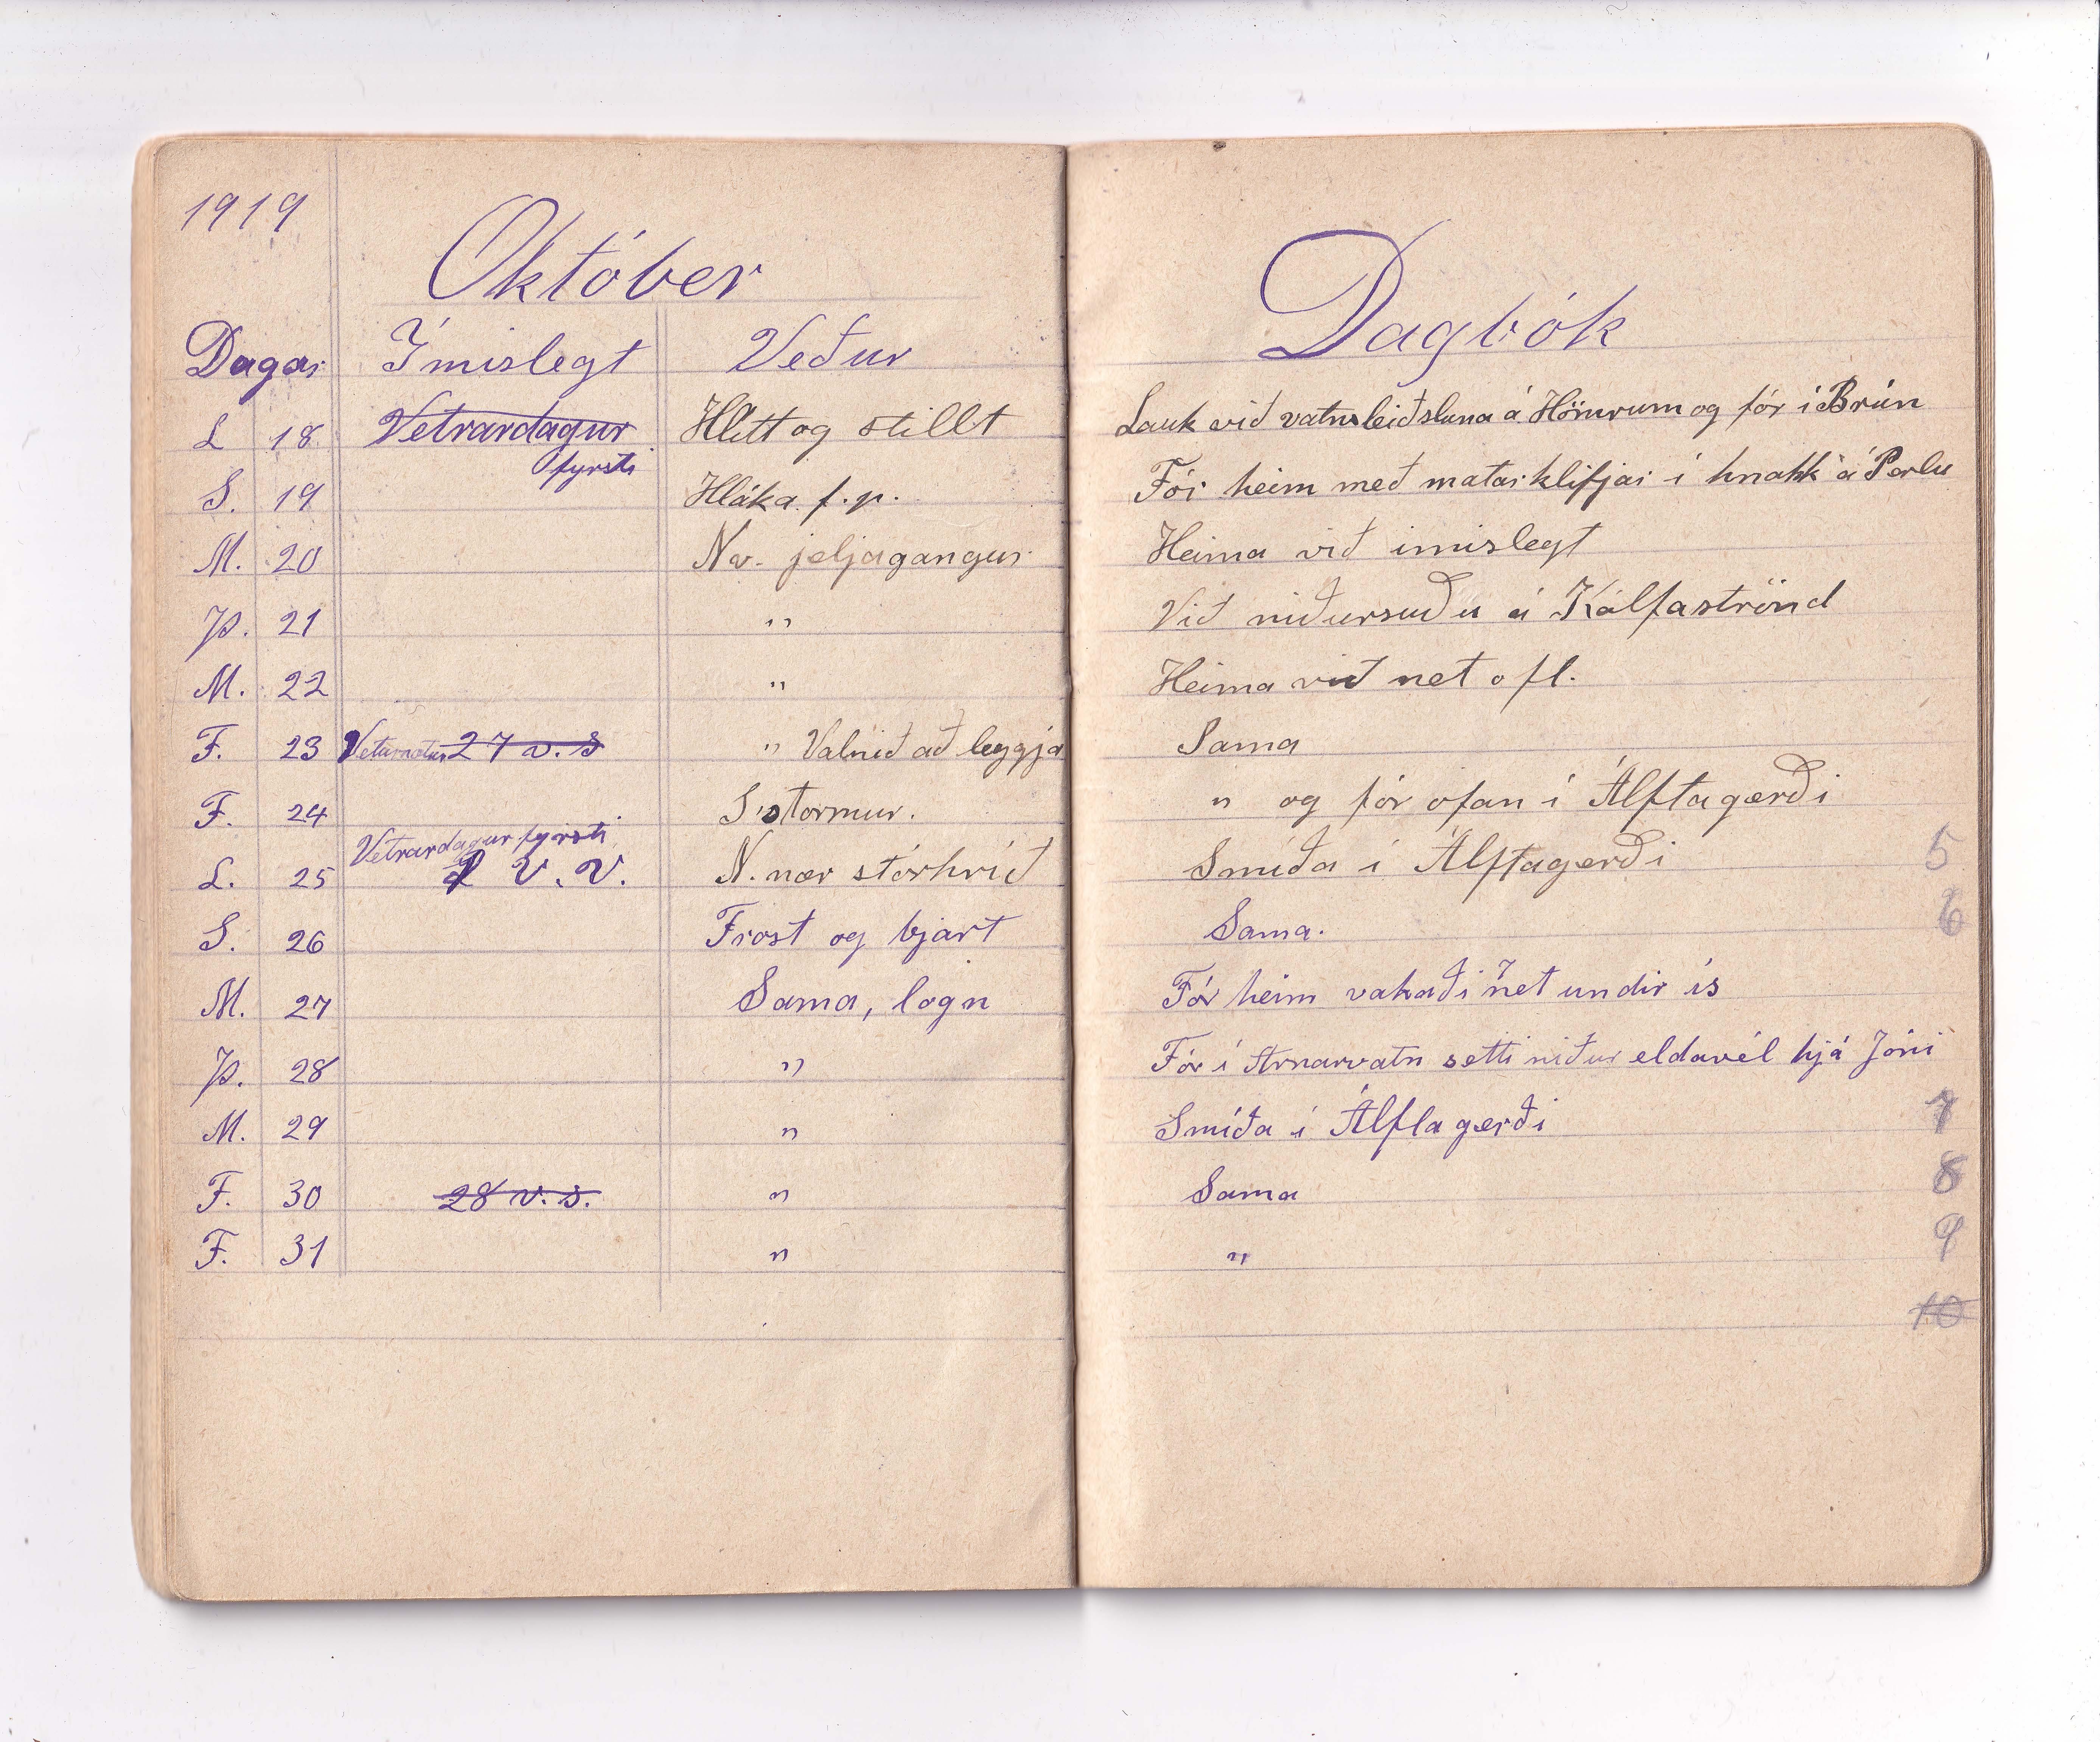 1919
Október
Dagar Ímislegt Veður
L 18 Vetrardagur Hlítt og stillt
fyrsti
S. 19 Hláka f.p.
M. 20 Nv. jeljagangur
Þ. 21 "
M. 22 "
F. 23 Veturnætur 27 v. s " Vatnið að leggja
F. 24 S. stormur.
Vetrardagur fyrsti
L. 25 1 V. V. N. nær stórhríð
S. 26 Frost og bjart
M. 27 Sama, logn
Þ. 28 "
M. 29 "
F. 30 28 v. s. "
F. 31 "
Dagbók
Lauk við vatnsleiðsluna á Hömrum og fór í Brún
Fór heim með matarklifjar í hnakk á Perlu
Heima við imislegt
Við niðursuðu á Kálfaströnd
Heima við net o fl.
Sama
" og fór ofan í Álftagerði
Smíða í Álftagerði 5
Sama. 6
Fór heim vakaði 7 net undir ís
Fór í Arnarvatn setti niður eldavél hjá Jóni
Smíða í Álftagerði 7
Sama 8
" 9
10